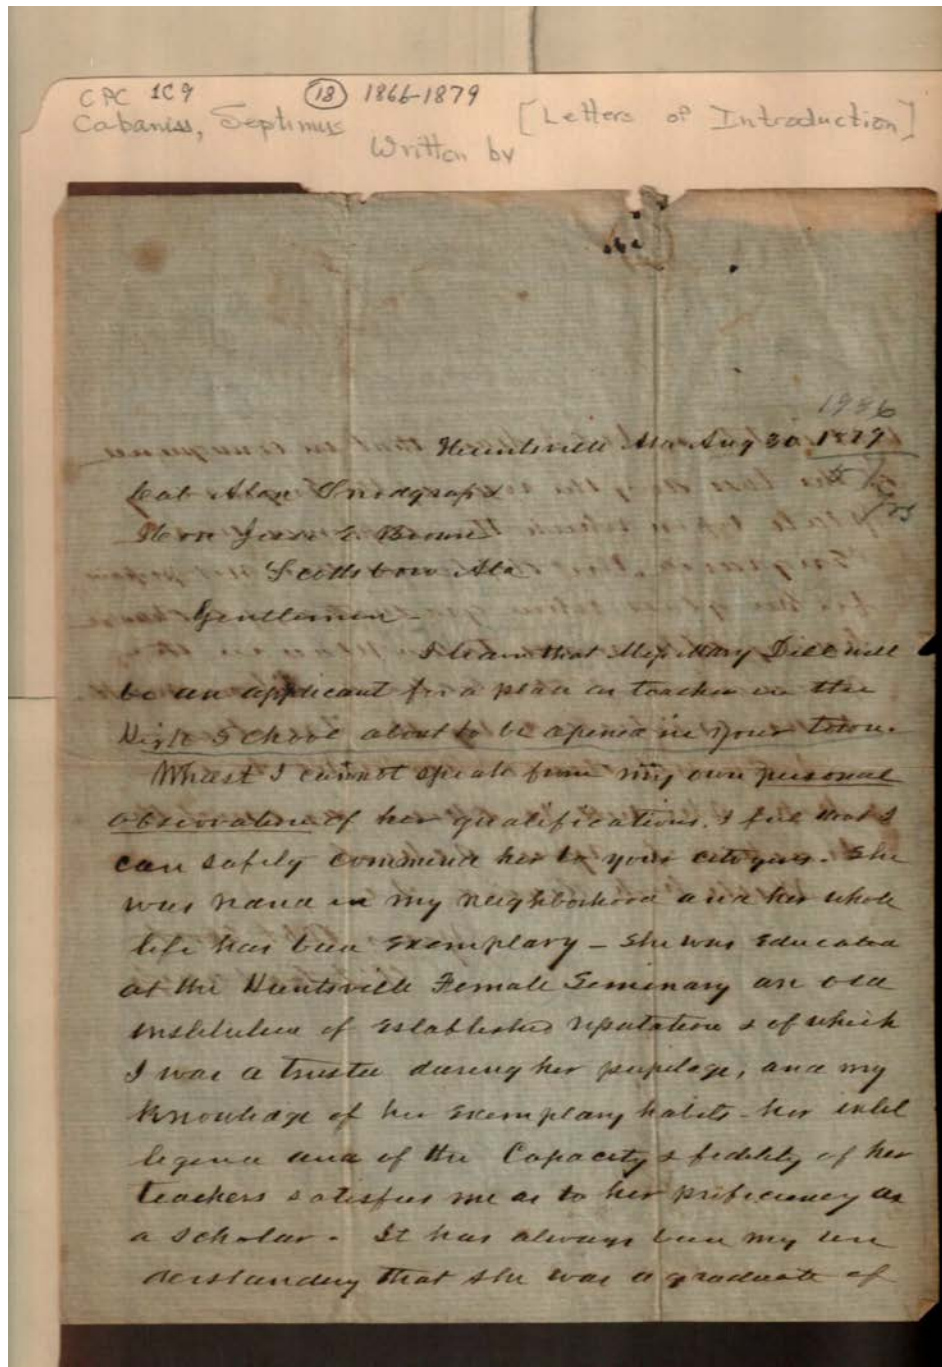 CPC 1C9 (18) 1866-1879
Cabaniss, Septimus [Letters of Introduction]
Written by
1936
Huntsville Ala Aug 30 1879
Alex Snodgrass
Hon Jesse E Brown
Scottsboro Ala
Gentlemen -
I learn that Miss Mary Dill will
be an applicant for a place as teacher in the
High School about to be opened in your town.
Whilst I cannot speak from my own personal
observation of her qualifications, I feel that I
can safely commend her to your citizens. She
was reared in my neighborhood and her whole
life has been exemplary - She was educated
at the Huntsville Female Seminary an old
institution of established reputation & of which
I was a trustee during her pupilage, and my
knowledge of her exemplary habits - her intel
ligence and of the capacity & fidelity of her
teachers satisfies me as to her proficiency as
a scholar. It has always been my un
derstanding that she was a graduate of